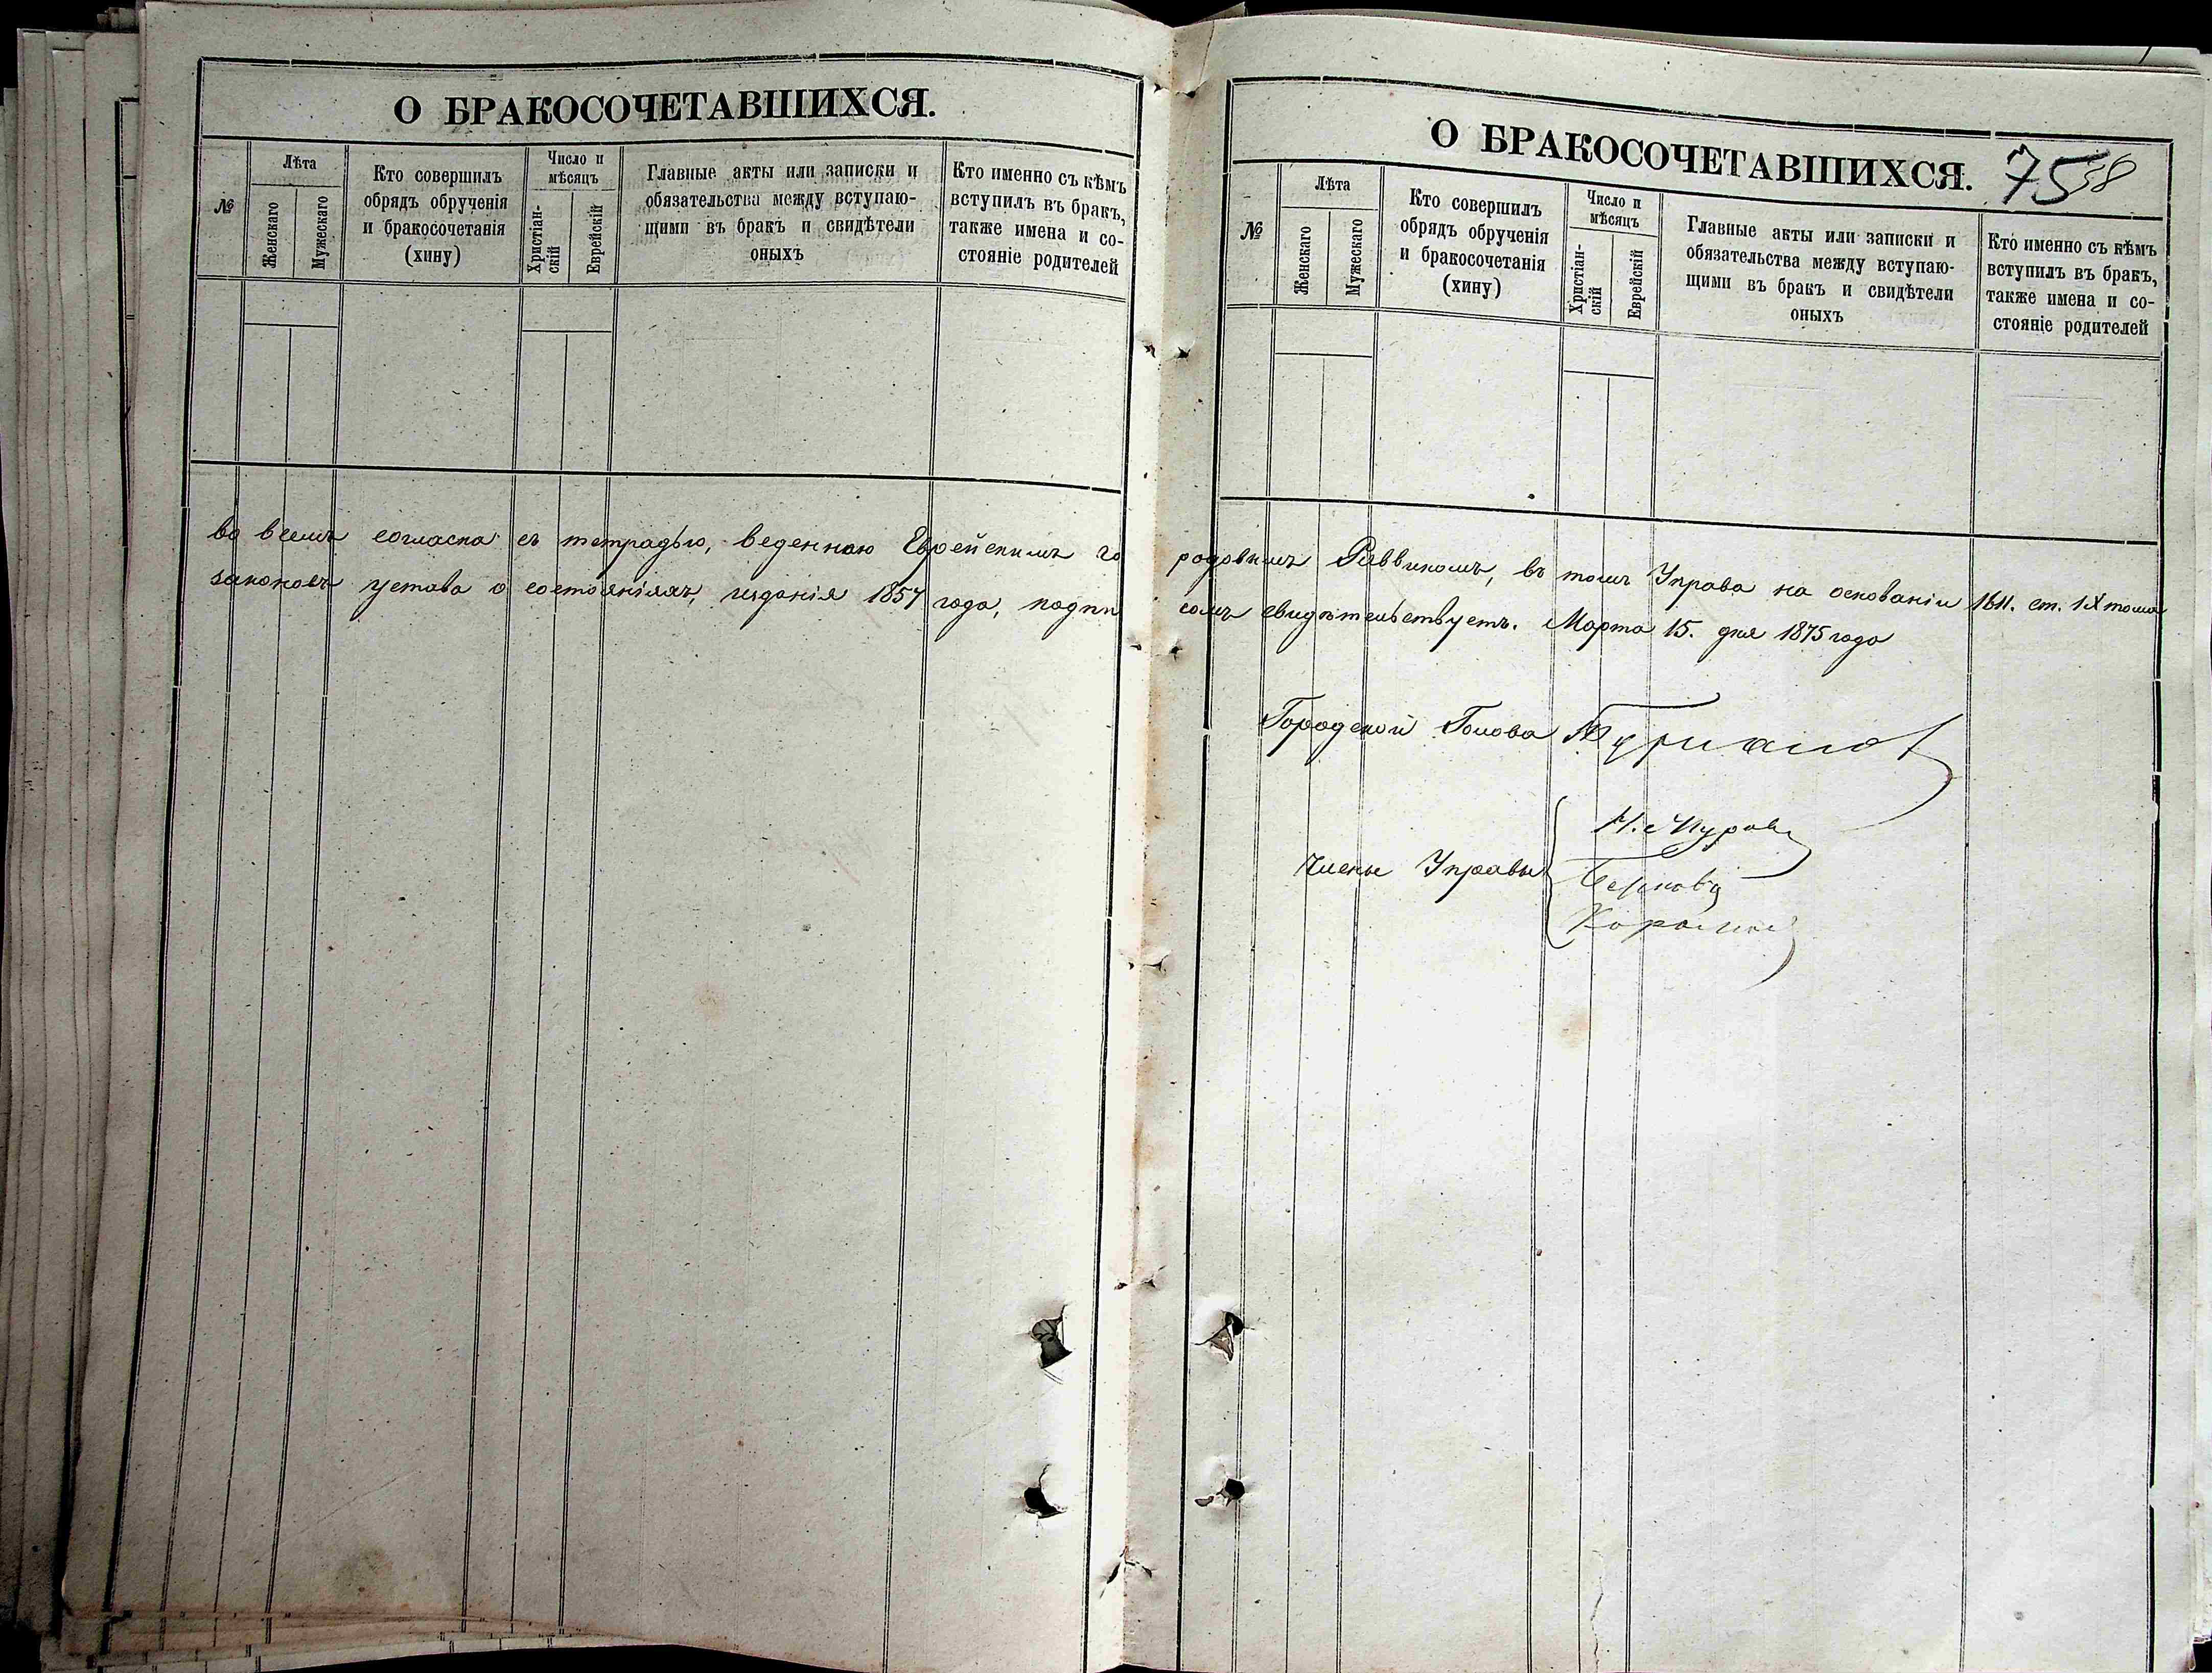 О БРАКОСОЧЕТАВШИХСЯ.
№
Лѣта
Женскаго
Мужескаго
Кто совершилъ
обрядъ обрученія
и бракосочетанія
(хину)
Число и
мѣсяцъ
Христіан-
скій
Еврейскій
Главные акты или записки и
обязательства между вступаю-
щими въ бракъ и свидѣтели
оныхъ
Кто именно съ кѣмъ
вступилъ въ бракъ,
также имена и со-
стояніе родителей
О БРАКОСОЧЕТАВШИХСЯ.
75 58
№
Лѣта
Женскаго
Мужескаго
Кто совершилъ
обрядъ обрученія
и бракосочетанія
(хину)
Число и
мѣсяцъ
Христіан-
скій
Еврейскій
Главные акты или записки и
обязательства между вступаю-
щими въ бракъ и свидѣтели
оныхъ
Кто именно съ кѣмъ
вступилъ въ бракъ,
также имена и со-
стояніе родителей
во всемъ согласна съ тетрадью, веденною Еврейскимъ го родовымъ Раввиномъ, въ томъ Управа на основаніи 1611. ст. IX тома
законовъ устава о состояніяхъ, изданія 1857 года, подпи сомъ свидѣтельствуетъ. Марта 15. дня 1875 года
Городской Голова
Члены Управы